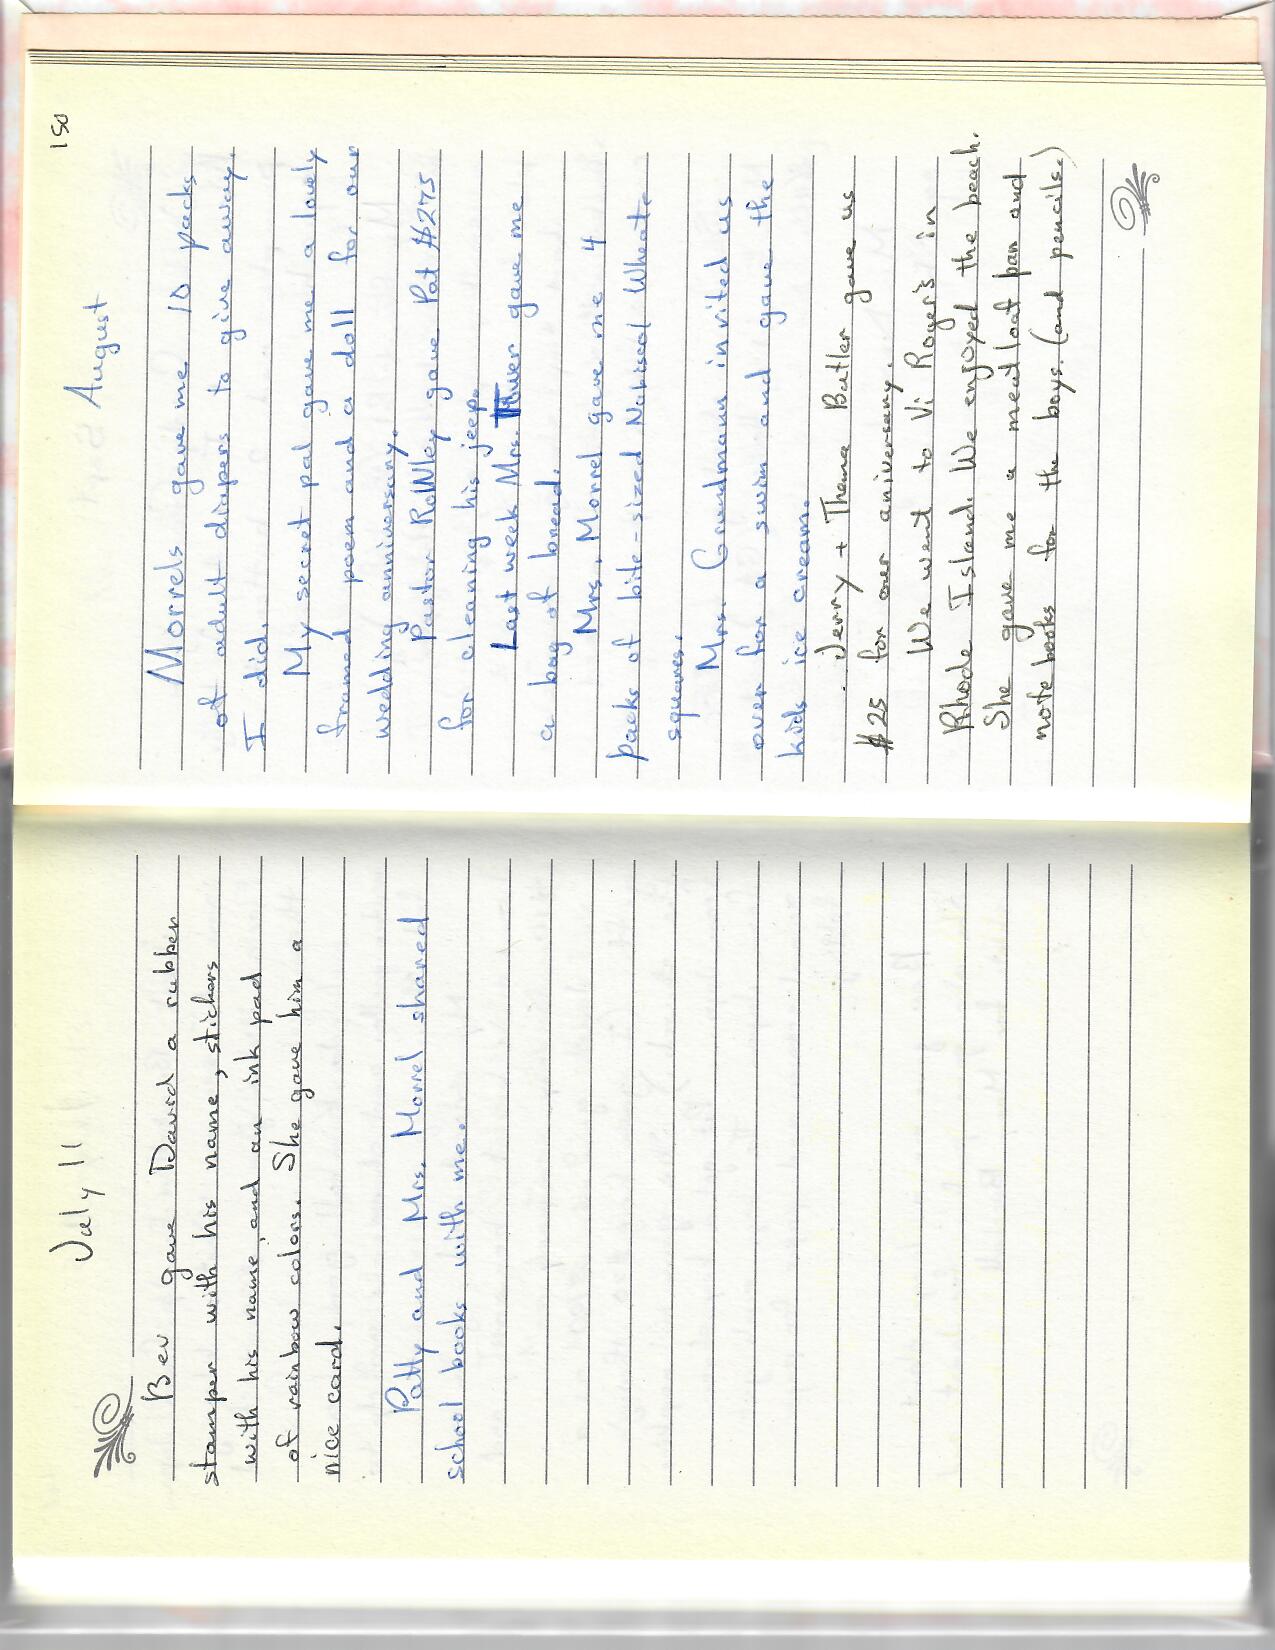 July 11
Bev gave David a rubber
stamper with his name, stickers
with his name, and an ink pad
of rainbow colors. She gave him a
nice card.
Patty and Mrs. Morrel shared
school books with me.
150
August
Morrels gave me 10 packs
of adult diapers to give away.
I did.
My secret pal gave me a lovely
framed poem and a doll for our
wedding anniversary.
Pastor RoWley gave Pat $275
for cleaning his jeep.
Last week Mrs. gave me
a bag of bread.
Mrs. Morrel gave me 4
packs of bite-sized Nabiscal Wheat
squares.
Mrs. Grundmann invited us
over for a swim and gave the
kids ice cream.
Jerry + Thema Butler gave us
$25 for our aniversary.
We went to Vi Royer's in
Rhode Island. We enjoyed the beach.
She gave me a meatloat pan and
note books for the boys. (and pencils.)